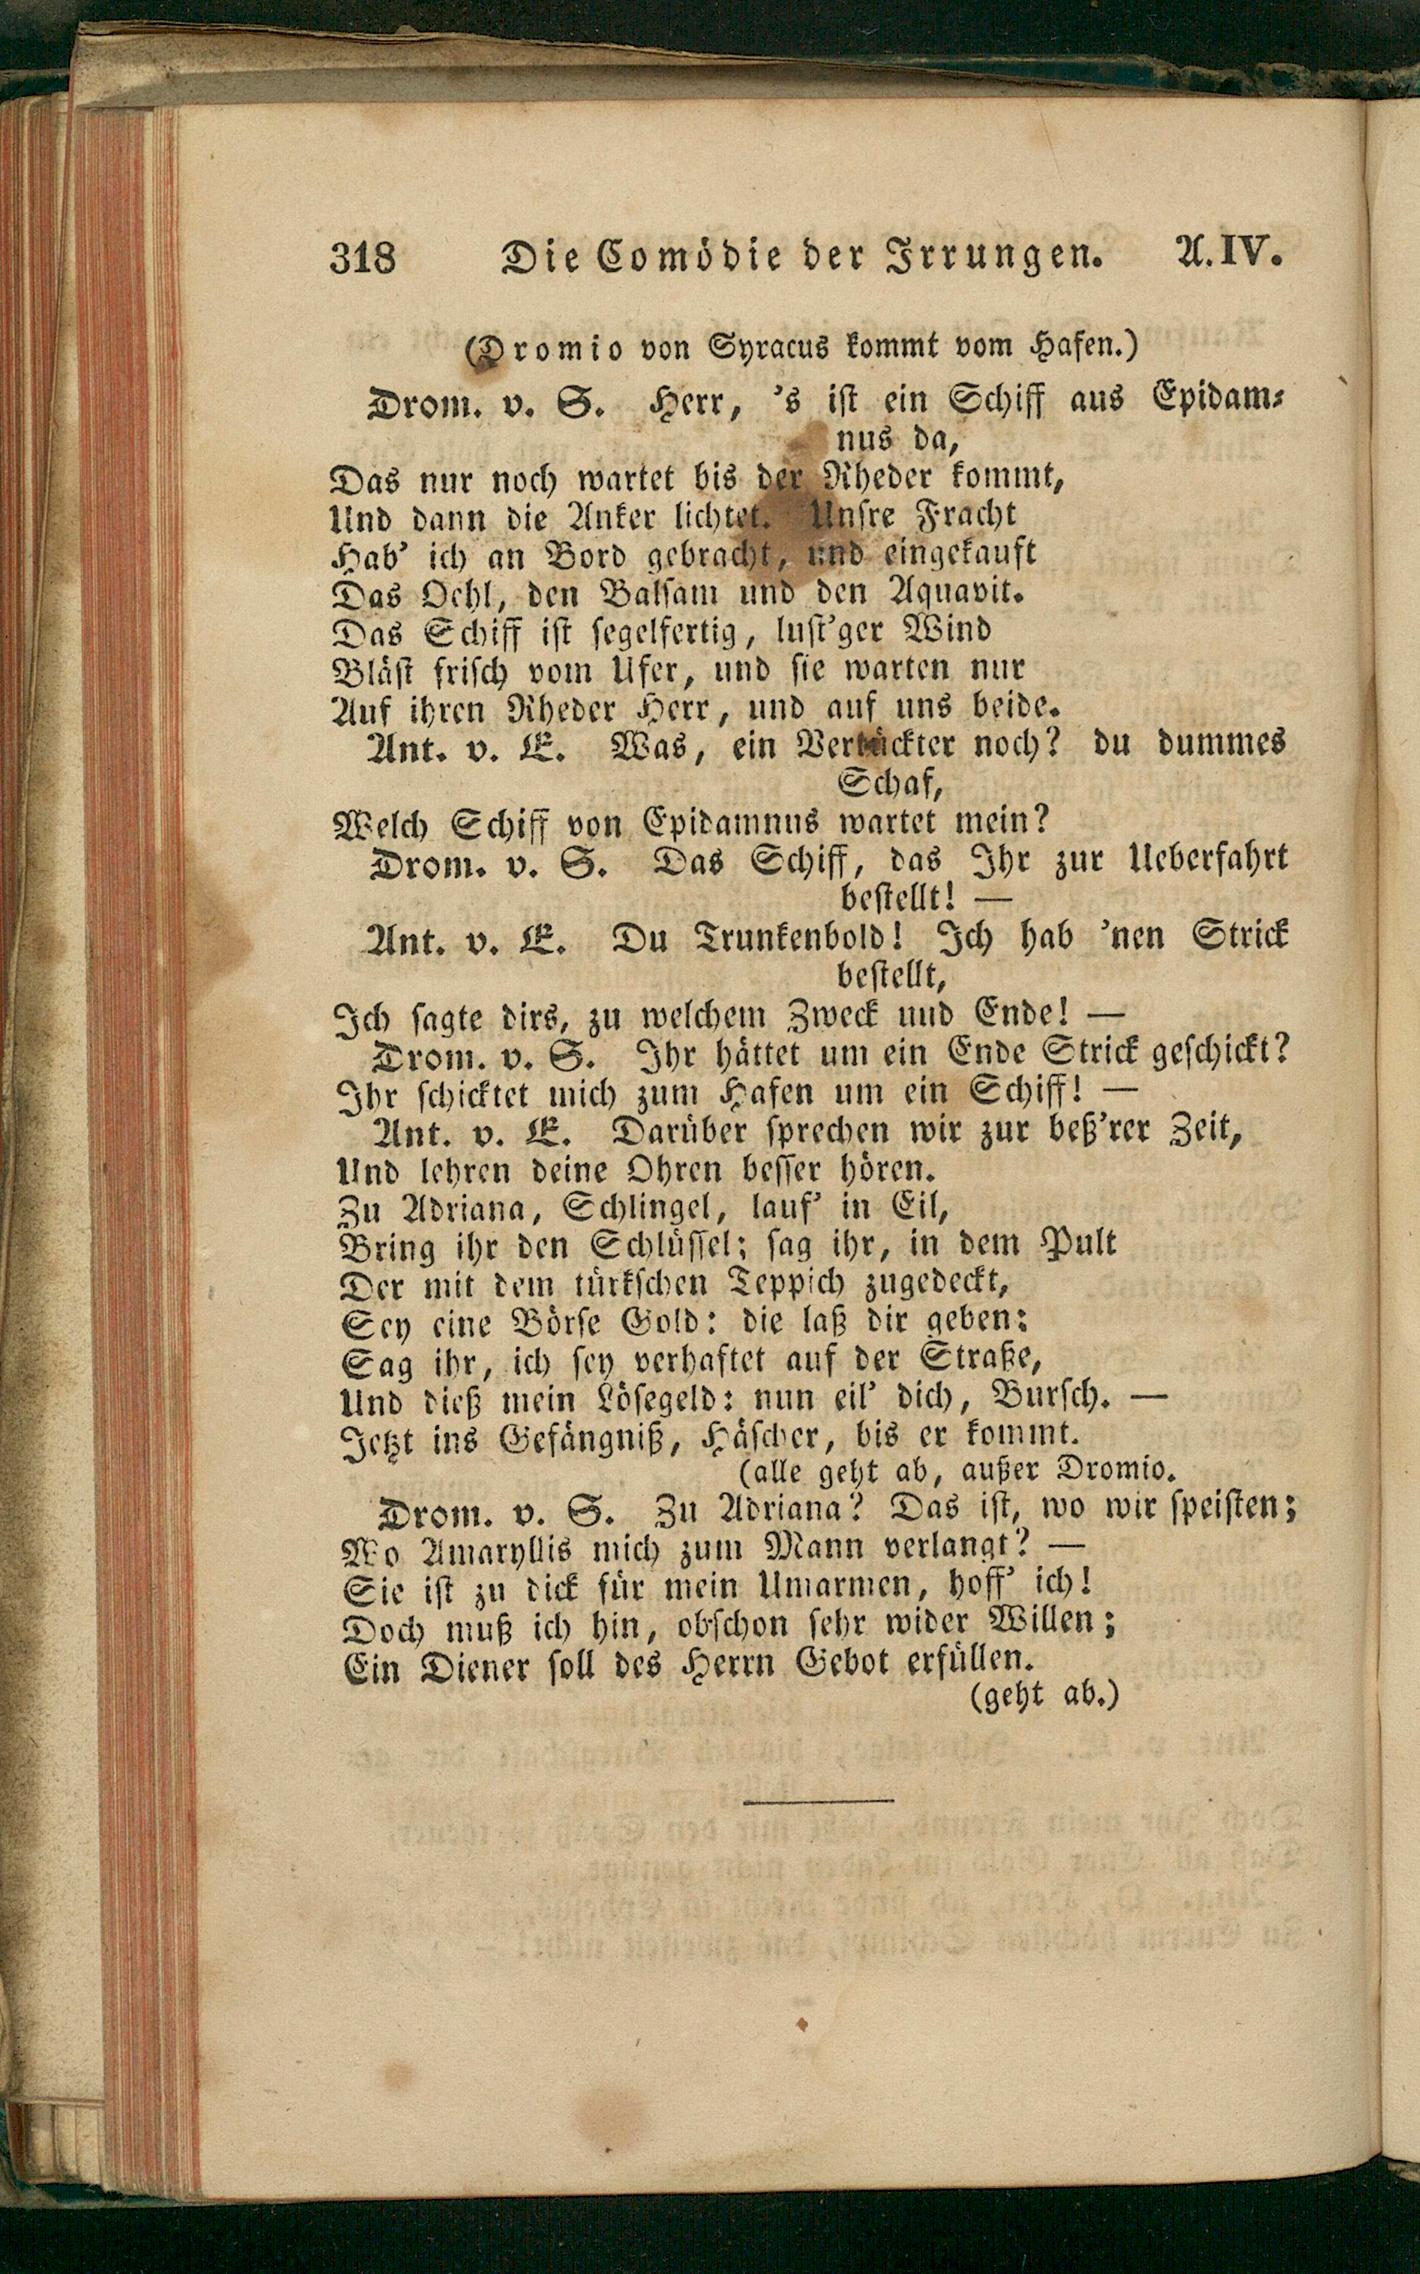 318 Die Comödie der Irrungen. A. IV.
(Dromio von Syracus kommt vom Hafen.)
Drom. v. S. Herr, 's ist ein Schiff aus Epidam-
nus da,
Das nur noch wartet bis der Rheder kommt,
Und dann die Anker lichtet. Unsre Fracht
Hab' ich an Bord gebracht, und eingekauft
Das Oehl, den Balsam und den Aquavit.
Das Schiff ist segelfertig, lust'ger Wind
Bläst frisch vom Ufer, und sie warten nur
Auf ihren Rheder Herr, und auf uns beide.
Ant. v. E. Was, ein Verrückter noch? du dummes
Schaf,
Welch Schiff von Epidamnus wartet mein?
Drom. v. S. Das Schiff, das Ihr zur Ueberfahrt
bestellt! —
Ant. v. E. Du Trunkenbold! Ich hab 'nen Strick
bestellt,
Ich sagte dirs, zu welchem Zweck und Ende! —
Drom. v. S. Ihr hättet um ein Ende Strick geschickt?
Ihr schicktet mich zum Hafen um ein Schiff! —
Ant. v. E. Darüber sprechen wir zur beß'rer Zeit,
Und lehren deine Ohren besser hören.
Zu Adriana, Schlingel, lauf' in Eil,
Bring ihr den Schlüssel; sag ihr, in dem Pult
Der mit dem türkschen Teppich zugedeckt,
Sey eine Börse Gold: die laß dir geben;
Sag ihr, ich sey verhaftet auf der Straße,
Und dieß mein Lösegeld: nun eil' dich, Bursch. —
Jetzt ins Gefängniß, Häscher, bis er kommt.
(alle geht ab, außer Dromio.
Drom. v. S. Zu Adriana? Das ist, wo wir speisten;
Wo Amaryllis mich zum Mann verlangt? —
Sie ist zu dick für mein Umarmen, hoff' ich!
Doch muß ich hin, obschon sehr wider Willen;
Ein Diener soll des Herrn Gebot erfüllen.
(geht ab.)